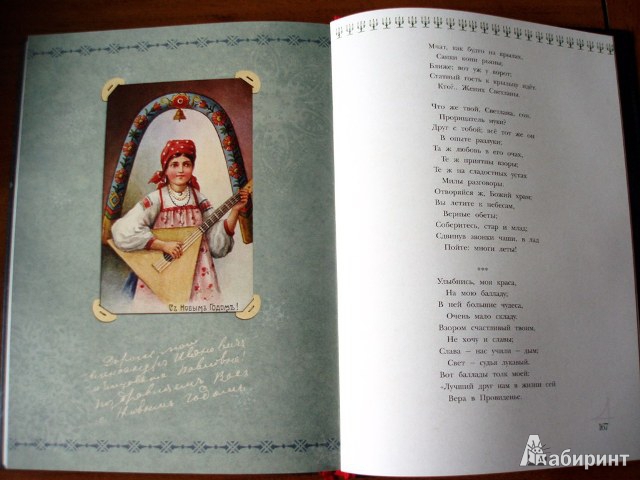 Съ Новымъ Годомъ!
Новымъ Годомъ
Мчат, как будто на крылах,
Санки кони рьяны;
Ближе; вот уж у ворот;
Статный гость к крыльцу идёт.
Кто?.. Жених Светланы.
Что же твой, Светлана, сон,
Прорицатель муки?
Друг с тобой; всё тот же он
В опыте разлуки;
Та ж любовь в его очах,
Те ж приятны взоры;
Те ж на сладостных устах
Милы разговоры.
Отворяйся ж, Божий храм;
Вы летите к небесам,
Верные обеты;
Соберитесь, стар и млад;
Сдвинув звонки чаши, в лад
Пойте: многи леты!
***
Улыбнись, моя краса,
На мою балладу;
В ней большие чудеса,
Очень мало складу.
Взором счастливый твоим,
Не хочу и славы;
Слава – нас учили – дым;
Свет – судья лукавый.
Вот баллады толк моей:
«Лучший друг нам в жизни сей
Вера в Провиденье.
167
Лабиринт